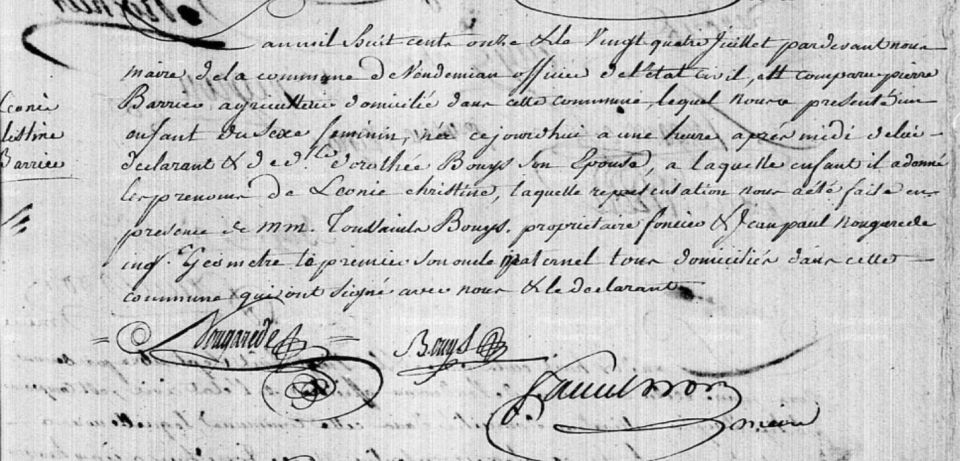 Leonie
Barrié
L'an mil huit cent onze & le vingt quatre Juillet pardevant nous
maire de la commune de Vendemian officier de l'état civil, est comparu pierre
Barrié agriculteur domicilié dans cette commune, lequel nous a presenté un
enfant du sexe feminin, née cejourd'hui a une heure après midi de lui
declarant & de d.lle dorothée Bouys son Epouse, a laquelle enfant il a donné
les prenoms de Leonie christine, laquelle representation nous a été faite en
presence de mm. Toussaints Bouys, proprietaire foncier & Jean paul nougarede
Geometre le premier son oncle maternel tous domiciliés dans cette
commune qui ont signé avec nous & le declarant
Nougarede
Bouys
maire